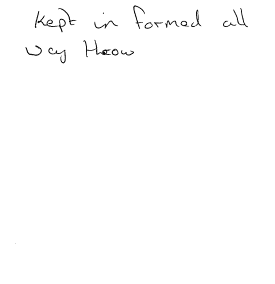 Kept in formed all
way Heow